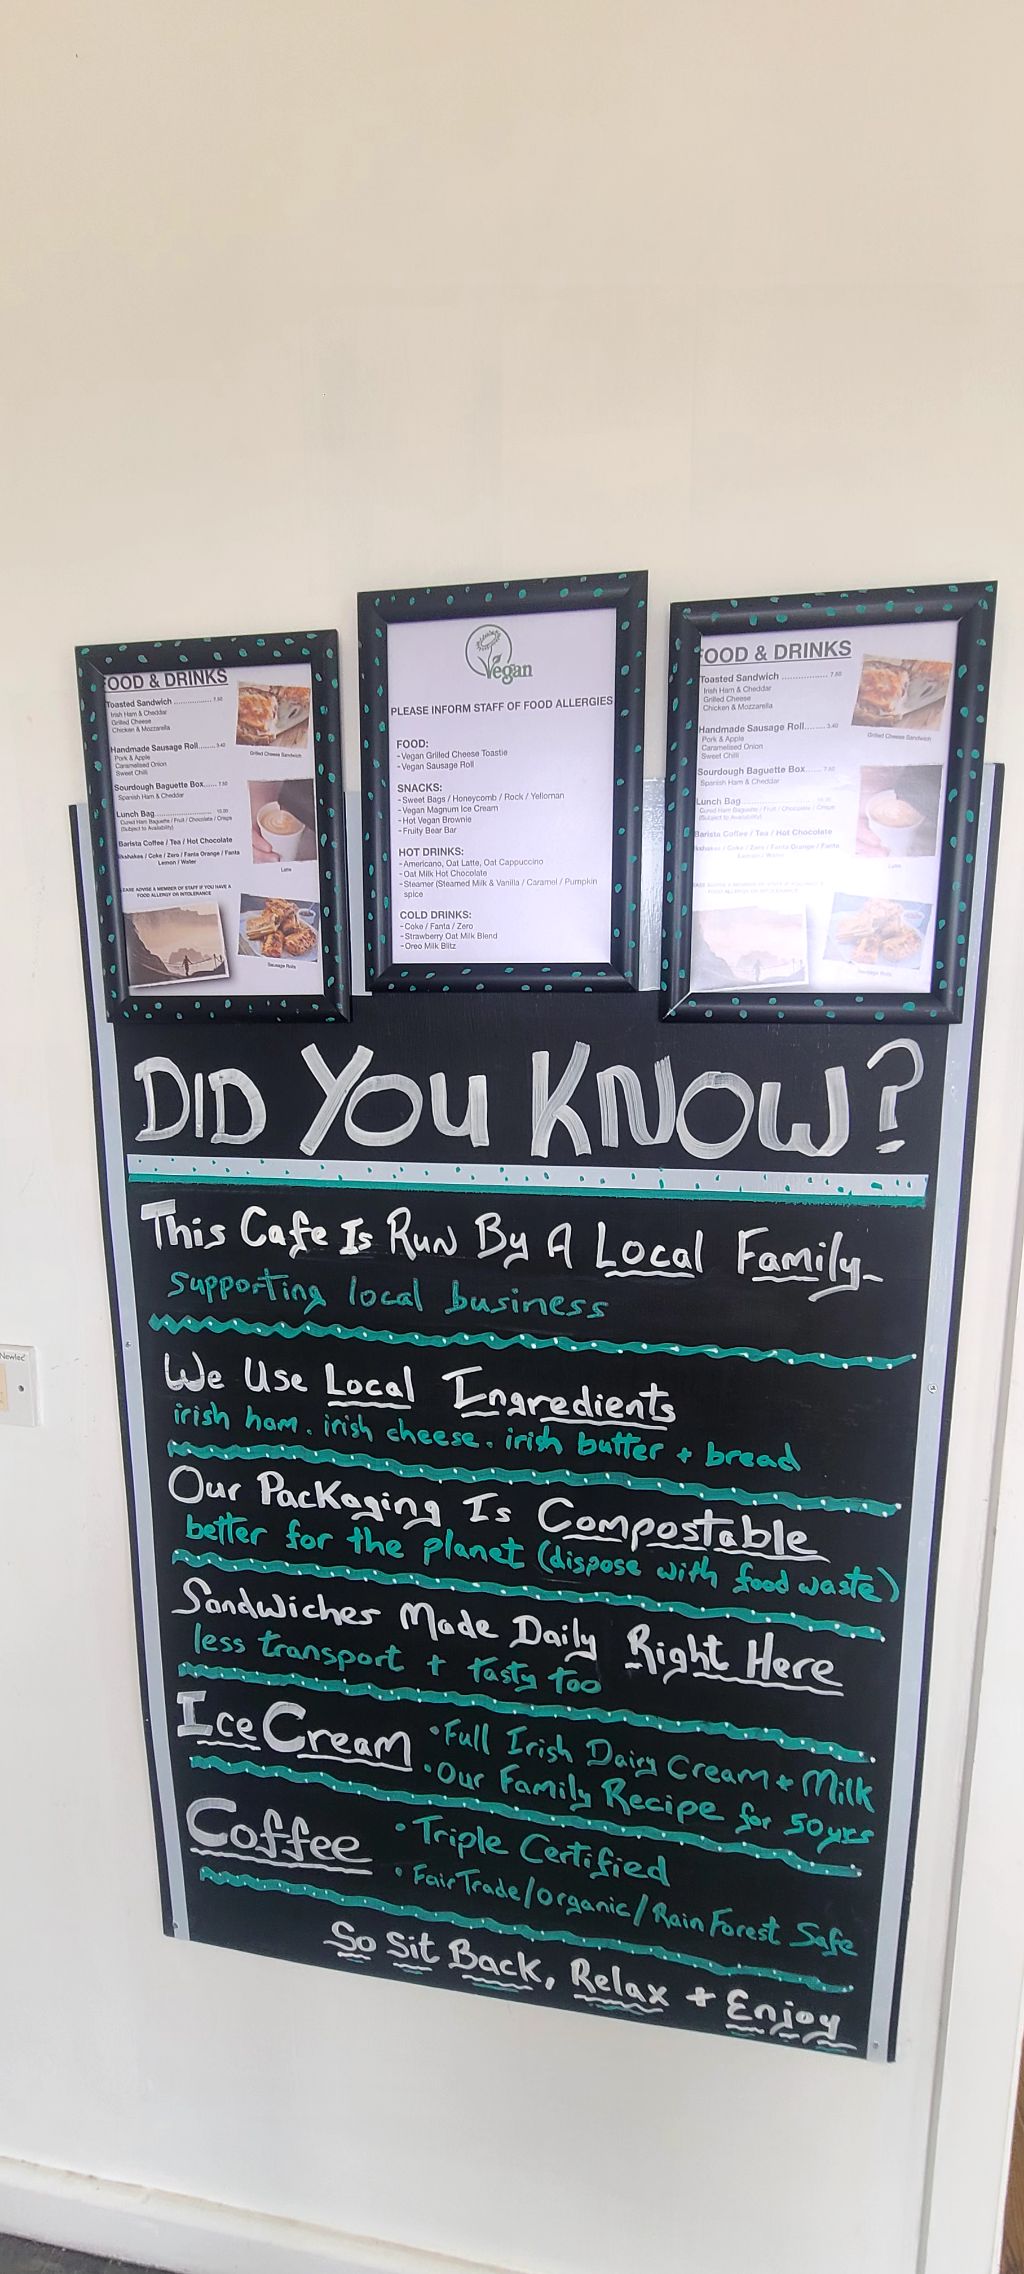 FOOD & DRINKS
Toasted Sandwich .................. 7.50
Irish Ham & Cheddar
Grilled Cheese
Chicken & Mozzarella
Grilled Cheese Sandwich
Handmade Sausage Roll........ 3.40
Pork & Apple
Caramelised Onion
Sweet Chilli
Sourdough Baguette Box...... 7.50
Spanish Ham & Cheddar
Lunch Bag........................ 10.00
Cured Ham Baguette / Fruit / Chocolate / Crisps
(Subject to Availability)
Barista Coffee / Tea / Hot Chocolate
lkshakes / Coke / Zero / Fanta Orange / Fanta
Lemon / Water
Latte
EASE ADVISE A MEMBER OF STAFF IF YOU HAVE A
FOOD ALLERGY OR INTOLERANCE
Sausage Rolls
Vegan
PLEASE INFORM STAFF OF FOOD ALLERGIES
FOOD:
- Vegan Grilled Cheese Toastie
- Vegan Sausage Roll
SNACKS:
- Sweet Bags / Honeycomb / Rock / Yelloman
- Vegan Magnum Ice Cream
- Hot Vegan Brownie
- Fruity Bear Bar
HOT DRINKS:
- Americano, Oat Latte, Oat Cappuccino
- Oat Milk Hot Chocolate
- Steamer (Steamed Milk & Vanilla / Caramel / Pumpkin
spice
COLD DRINKS:
- Coke / Fanta / Zero
- Strawberry Oat Milk Blend
- Oreo Milk Blitz
FOOD & DRINKS
Toasted Sandwich .................. 7.50
Irish Ham & Cheddar
Grilled Cheese
Chicken & Mozzarella
Grilled Cheese Sandwich
Handmade Sausage Roll........ 3.40
Pork & Apple
Caramelised Onion
Sweet Chilli
Sourdough Baguette Box...... 7.50
Spanish Ham & Cheddar
Lunch Bag........................ 10.00
Cured Ham Baguette / Fruit / Chocolate / Crisps
(Subject to Availability)
Barista Coffee / Tea / Hot Chocolate
kshakes / Coke / Zero / Fanta Orange / Fanta
Lemon / Water
Latte
Sausage Rolls
DID YOU KNOW?
This Cafe Is Run By A Local Family-
supporting local business
We Use Local Ingredients
irish ham. irish cheese. irish butter + bread
Our Packaging Is Compostable
better for the planet (dispose with food waste)
Sandwiches Made Daily Right Here
less transport + tasty too
Ice Cream • Full Irish Dairy Cream + Milk
• Our Family Recipe for 50yrs
Coffee • Triple Certified
• Fair Trade/organic/Rain Forest Safe
So Sit Back, Relax + Enjoy
Newlec